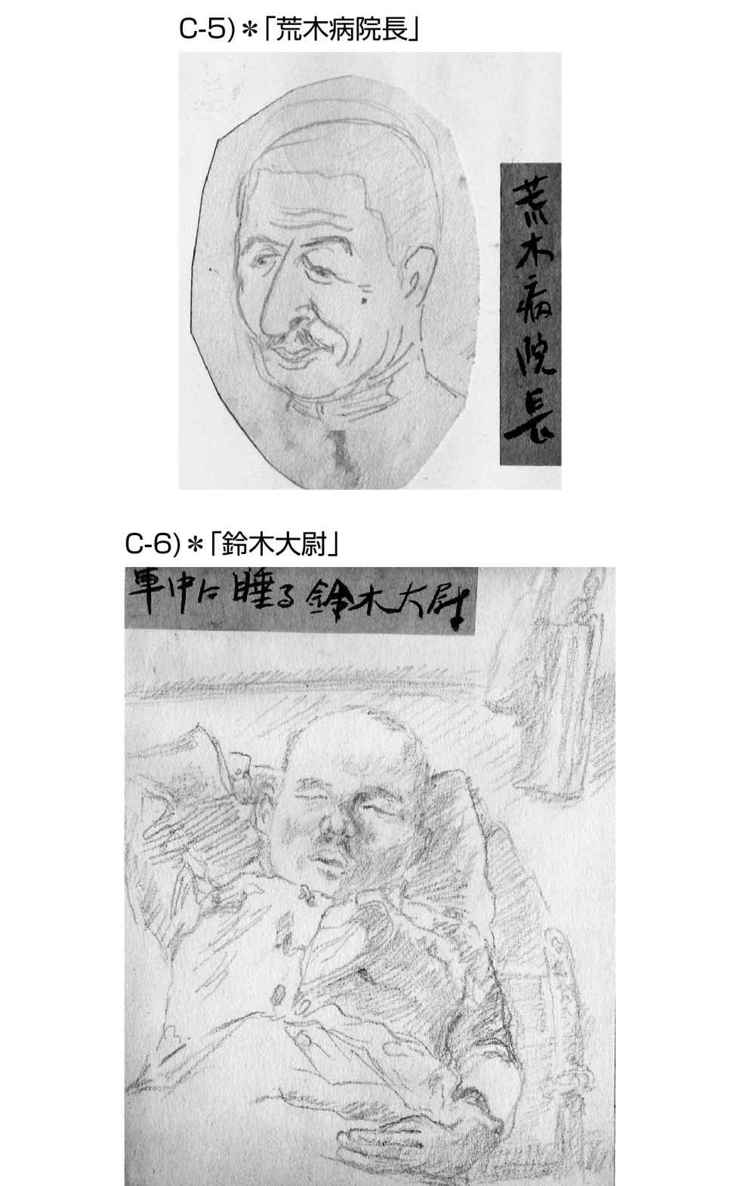 C-5)＊「荒木病院長」
荒木病院長
C-6)＊「鈴木大尉」
車中に睡る鈴木大尉